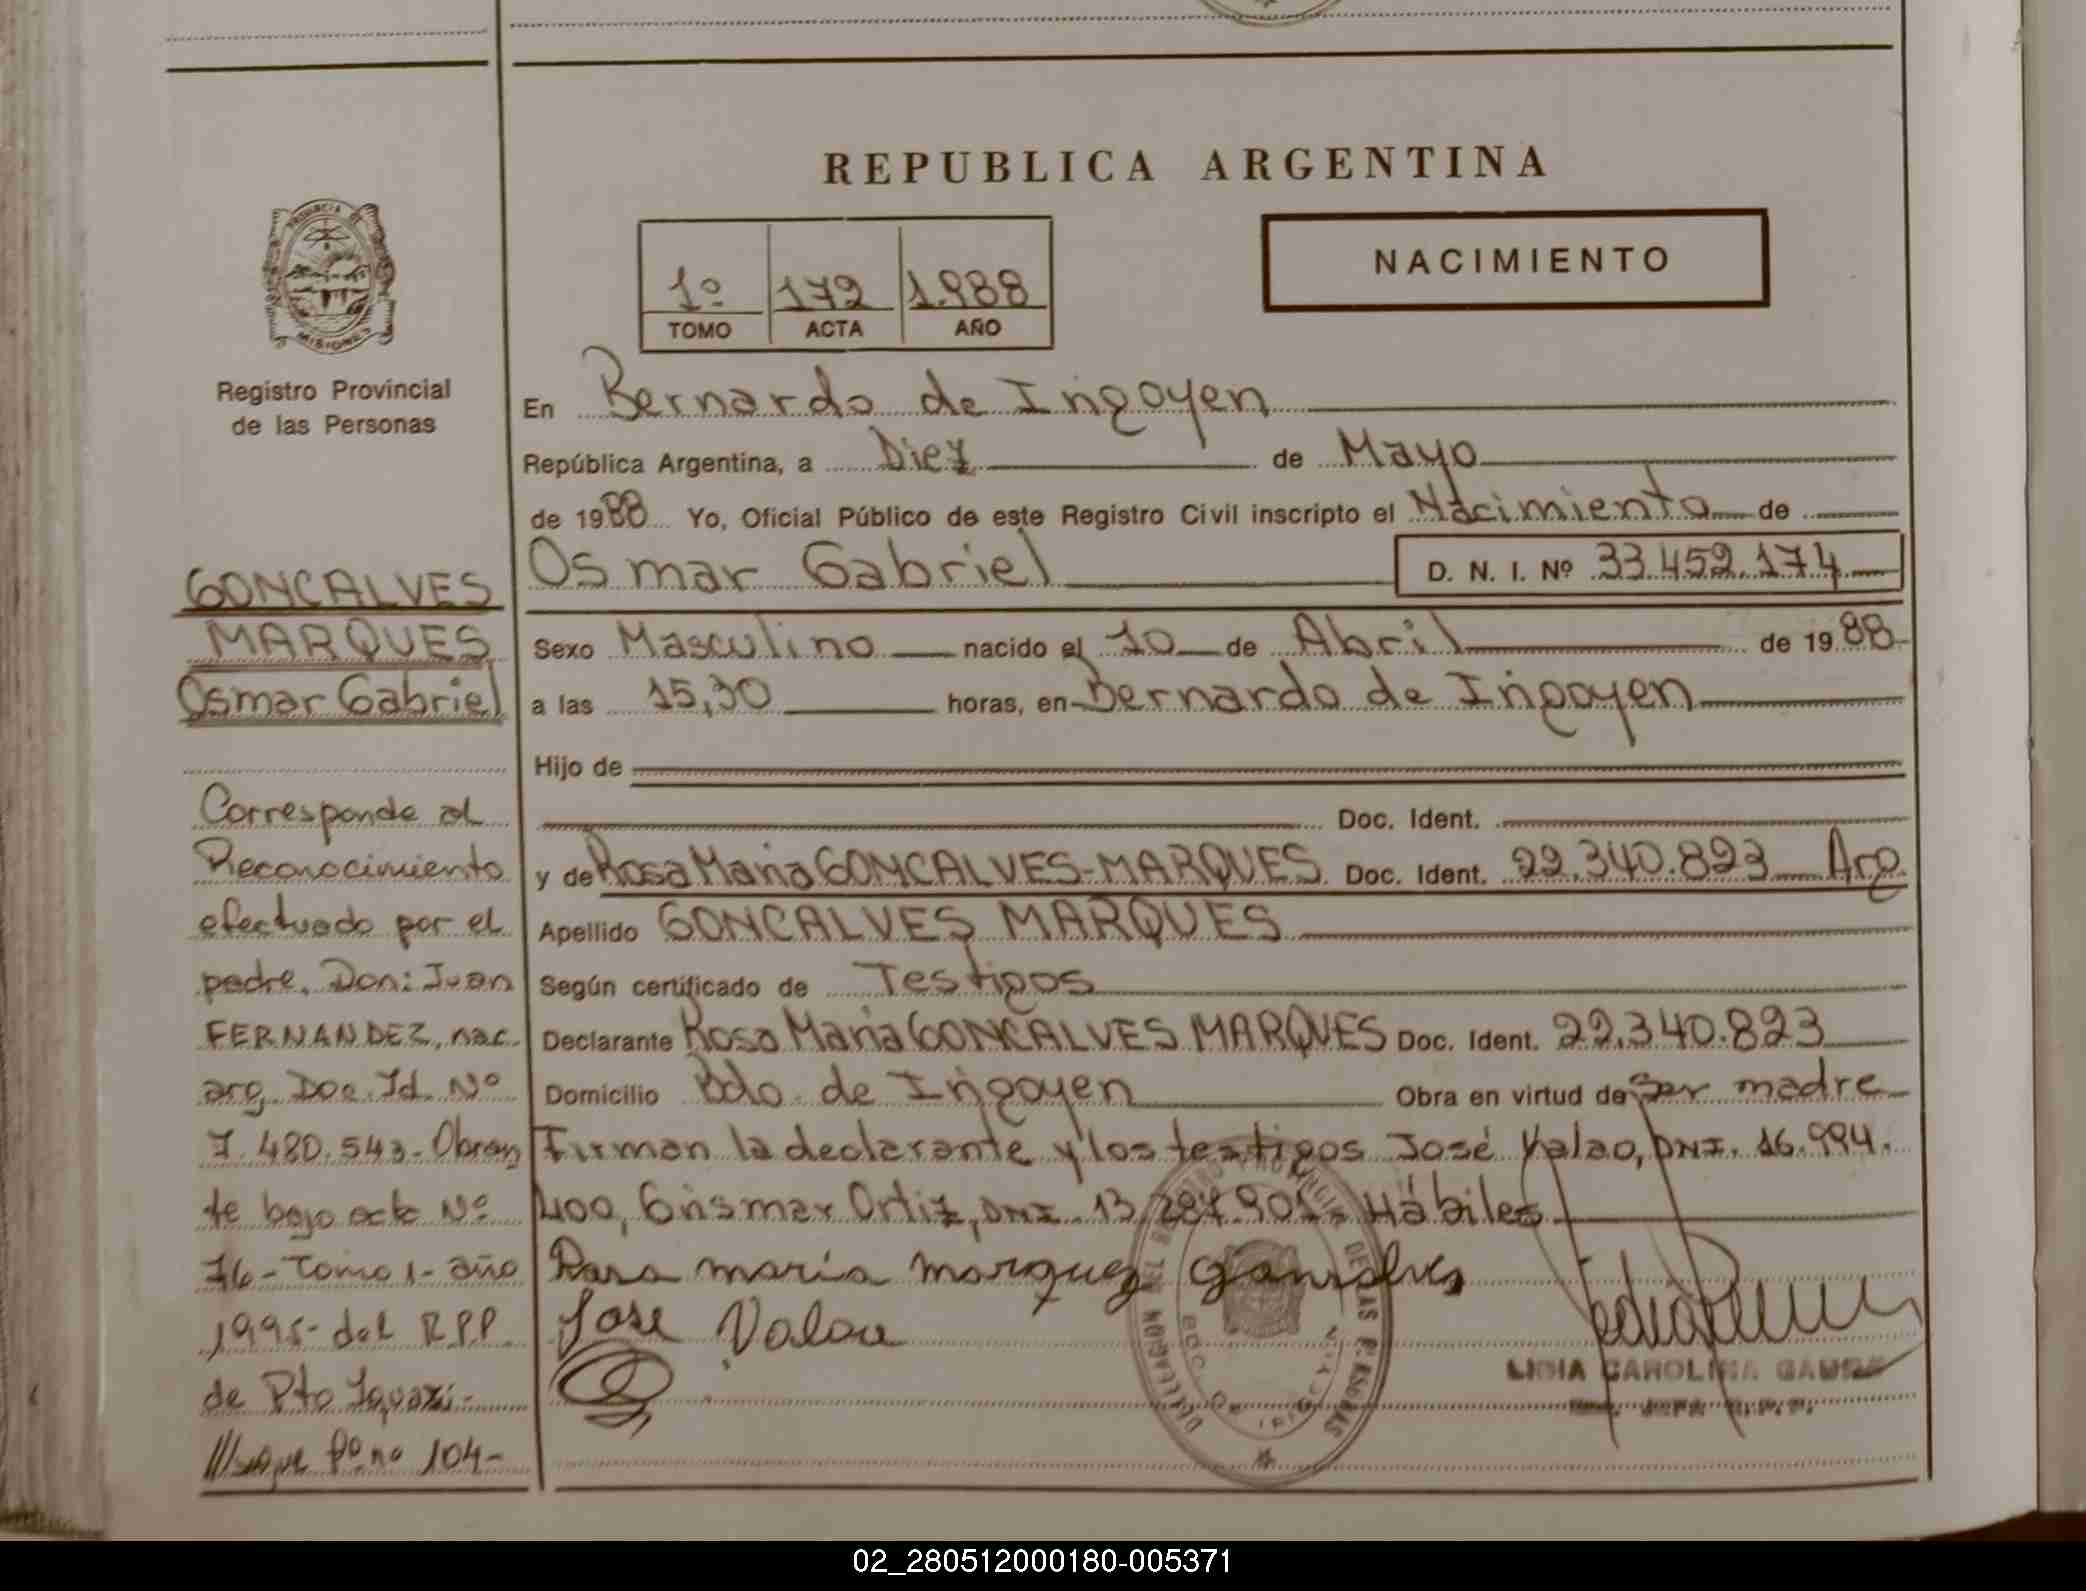 REPUBLICA ARGENTINA
NACIMIENTO
1º 172 1.988
TOMO ACTA AÑO
PROVINCIA DE MISIONES
Registro Provincial
de las Personas
En Bernardo de Irigoyen
República Argentina, a Diez de Mayo
de 1988 Yo, Oficial Público de este Registro Civil inscripto el Nacimiento de
Osmar Gabriel D. N. I. Nº 33.452.174
Sexo Masculino nacido el 10 de Abril de 1988
a las 15,30 horas, en Bernardo de Irigoyen
Hijo de
Doc. Ident.
y de Rosa Maria GONCALVES-MARQUES Doc. Ident. 22.340.823 Arg
Apellido GONCALVES MARQUES
Según certificado de Testigos
Declarante Rosa Maria GONCALVES MARQUES Doc. Ident. 22.340.823
Domicilio Bdo. de Irigoyen Obra en virtud de Ser madre
Firman la declarante y los testigos José Valao, DNI. 16.994.
400, Grismar Ortiz, DNI. 13.287.901- Hábiles
Rosa maria marquez gonsalves
Jose Valau
LIDIA CAROLINA
GONCALVES
MARQUES
Osmar Gabriel
Corresponde al
Reconocimiento
efectuado por el
padre, Don: Juan
FERNANDEZ, nac.
arg. Doc. Id. Nº
7.480.543- Obran
te bajo acta Nº
76- Tomo 1- año
1995- del R.P.P.
de Pto Iguazú-
104-
02_280512000180-005371